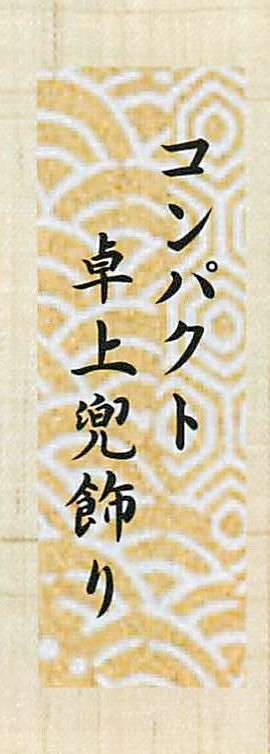 コンパクト
卓上兜飾り